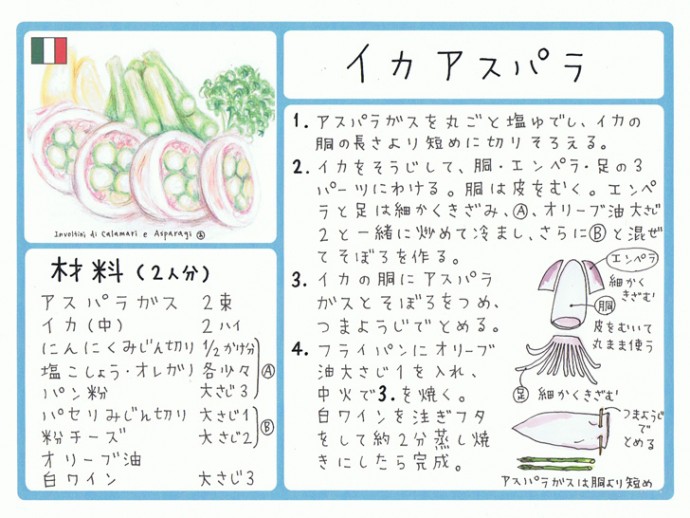 イカアスパラ
Involtini di Calamari e Asparagi
材料(2人分)
アスパラガス 2束
イカ(中) 2ハイ
にんにくみじん切り 1/2かけ分
塩こしょう・オレガノ 各少々
パン粉 大さじ3
Ⓐ
パセリみじん切り 大さじ1
粉チーズ 大さじ2
Ⓑ
オリーブ油
白ワイン 大さじ3
1. アスパラガスを丸ごと塩ゆでし、イカの
胴の長さより短めに切りそろえる。
2. イカをそうじして、胴・エンペラ・足の3
パーツにわける。胴は皮をむく。エンペ
ラと足は細かくきざみ、Ⓐ、オリーブ油大さじ
2と一緒に炒めて冷まし、さらにⒷと混ぜ
てそぼろを作る。
3. イカの胴にアスパラ
ガスとそぼろをつめ、
つまようじでとめる。
4. フライパンにオリーブ
油大さじ1を入れ、
中火で3.を焼く。
白ワインを注ぎフタ
をして約2分蒸し焼
きにしたら完成。
エンペラ
細かく
きざむ
胴
皮をむいて
丸まま使う
足 細かくきざむ
つまようじ
で
とめる
アスパラガスは胴より短め